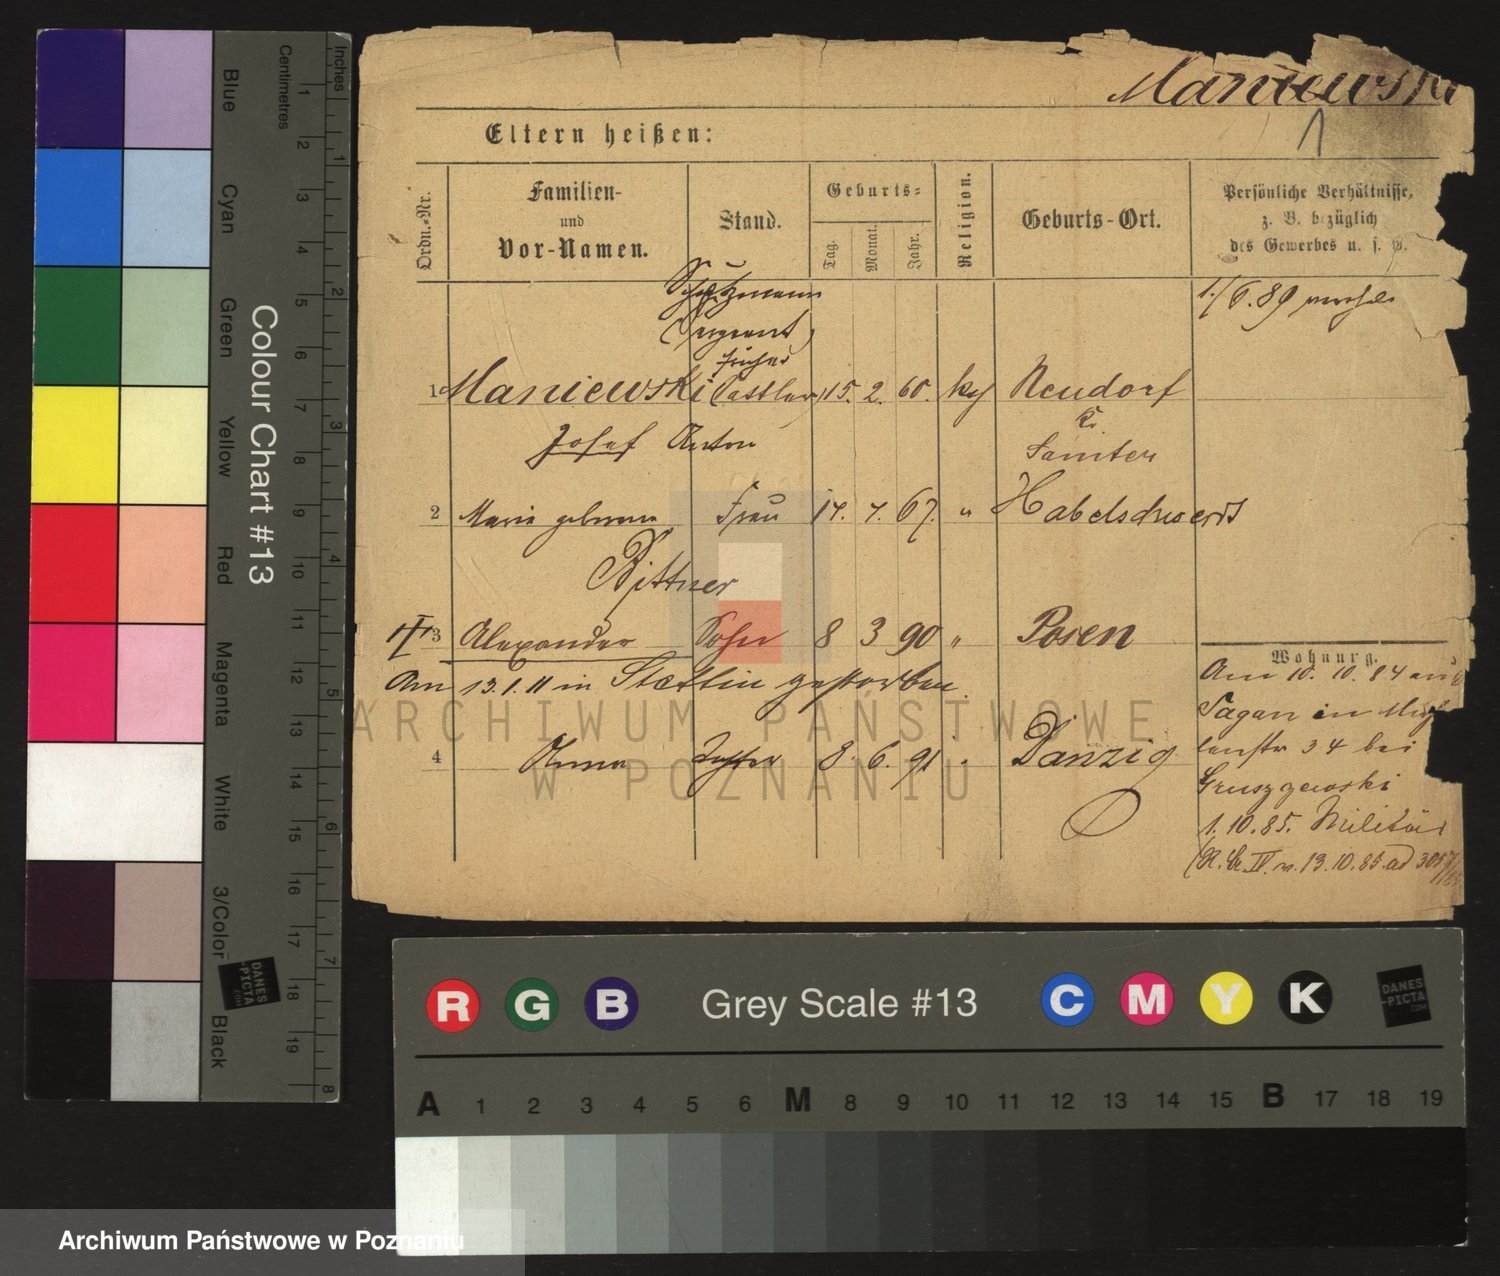 Maniewski
1
Eltern heißen:
Ordn.-Nr.
Familien-
und
Vor-Namen.
Stand.
Geburts-
Tag.
Monat.
Jahr.
Religion.
Geburts-Ort.
Persönliche Verhältnisse,
z. B. bezüglich
des Gewerbes u. s. w.
Schutzmann
(Sergeant)
früher
1 Maniewski Sattler 15. 2. 60. kath Neudorf
Josef Anton
Kr.
Samter
1./6. 89
2 Marie geborene Frau 14. 7. 67. " Habelschwerdt
Bittner
3 Alexander Sohn 8 3 90 " Posen
Am 13.1.11 in Stettin gestorben.
4 Anna Tochter 8. 6. 91 " Danzig
Wohnung.
Am 10. 10. 84 aus
Sagan in Müh
lenstr 34 bei
Gruszczewski
1. 10. 85. Militär
13. 10. 85. ad
ARCHIWUM PAŃSTWOWE
W POZNANIU
Inches
Centimetres
1 2 3 4 5 6 7 8 9 10 11 12 13 14 15 16 17 18 19
1 2 3 4 5 6 7 8
Colour Chart #13
Blue
Cyan
Green
Yellow
Red
Magenta
White
3/Color
Black
DANES
-PICTA
.COM
R G B Grey Scale #13 C M Y K
DANES
-PICTA
.COM
A 1 2 3 4 5 6 M 8 9 10 11 12 13 14 15 B 17 18 19
Archiwum Państwowe w Poznaniu